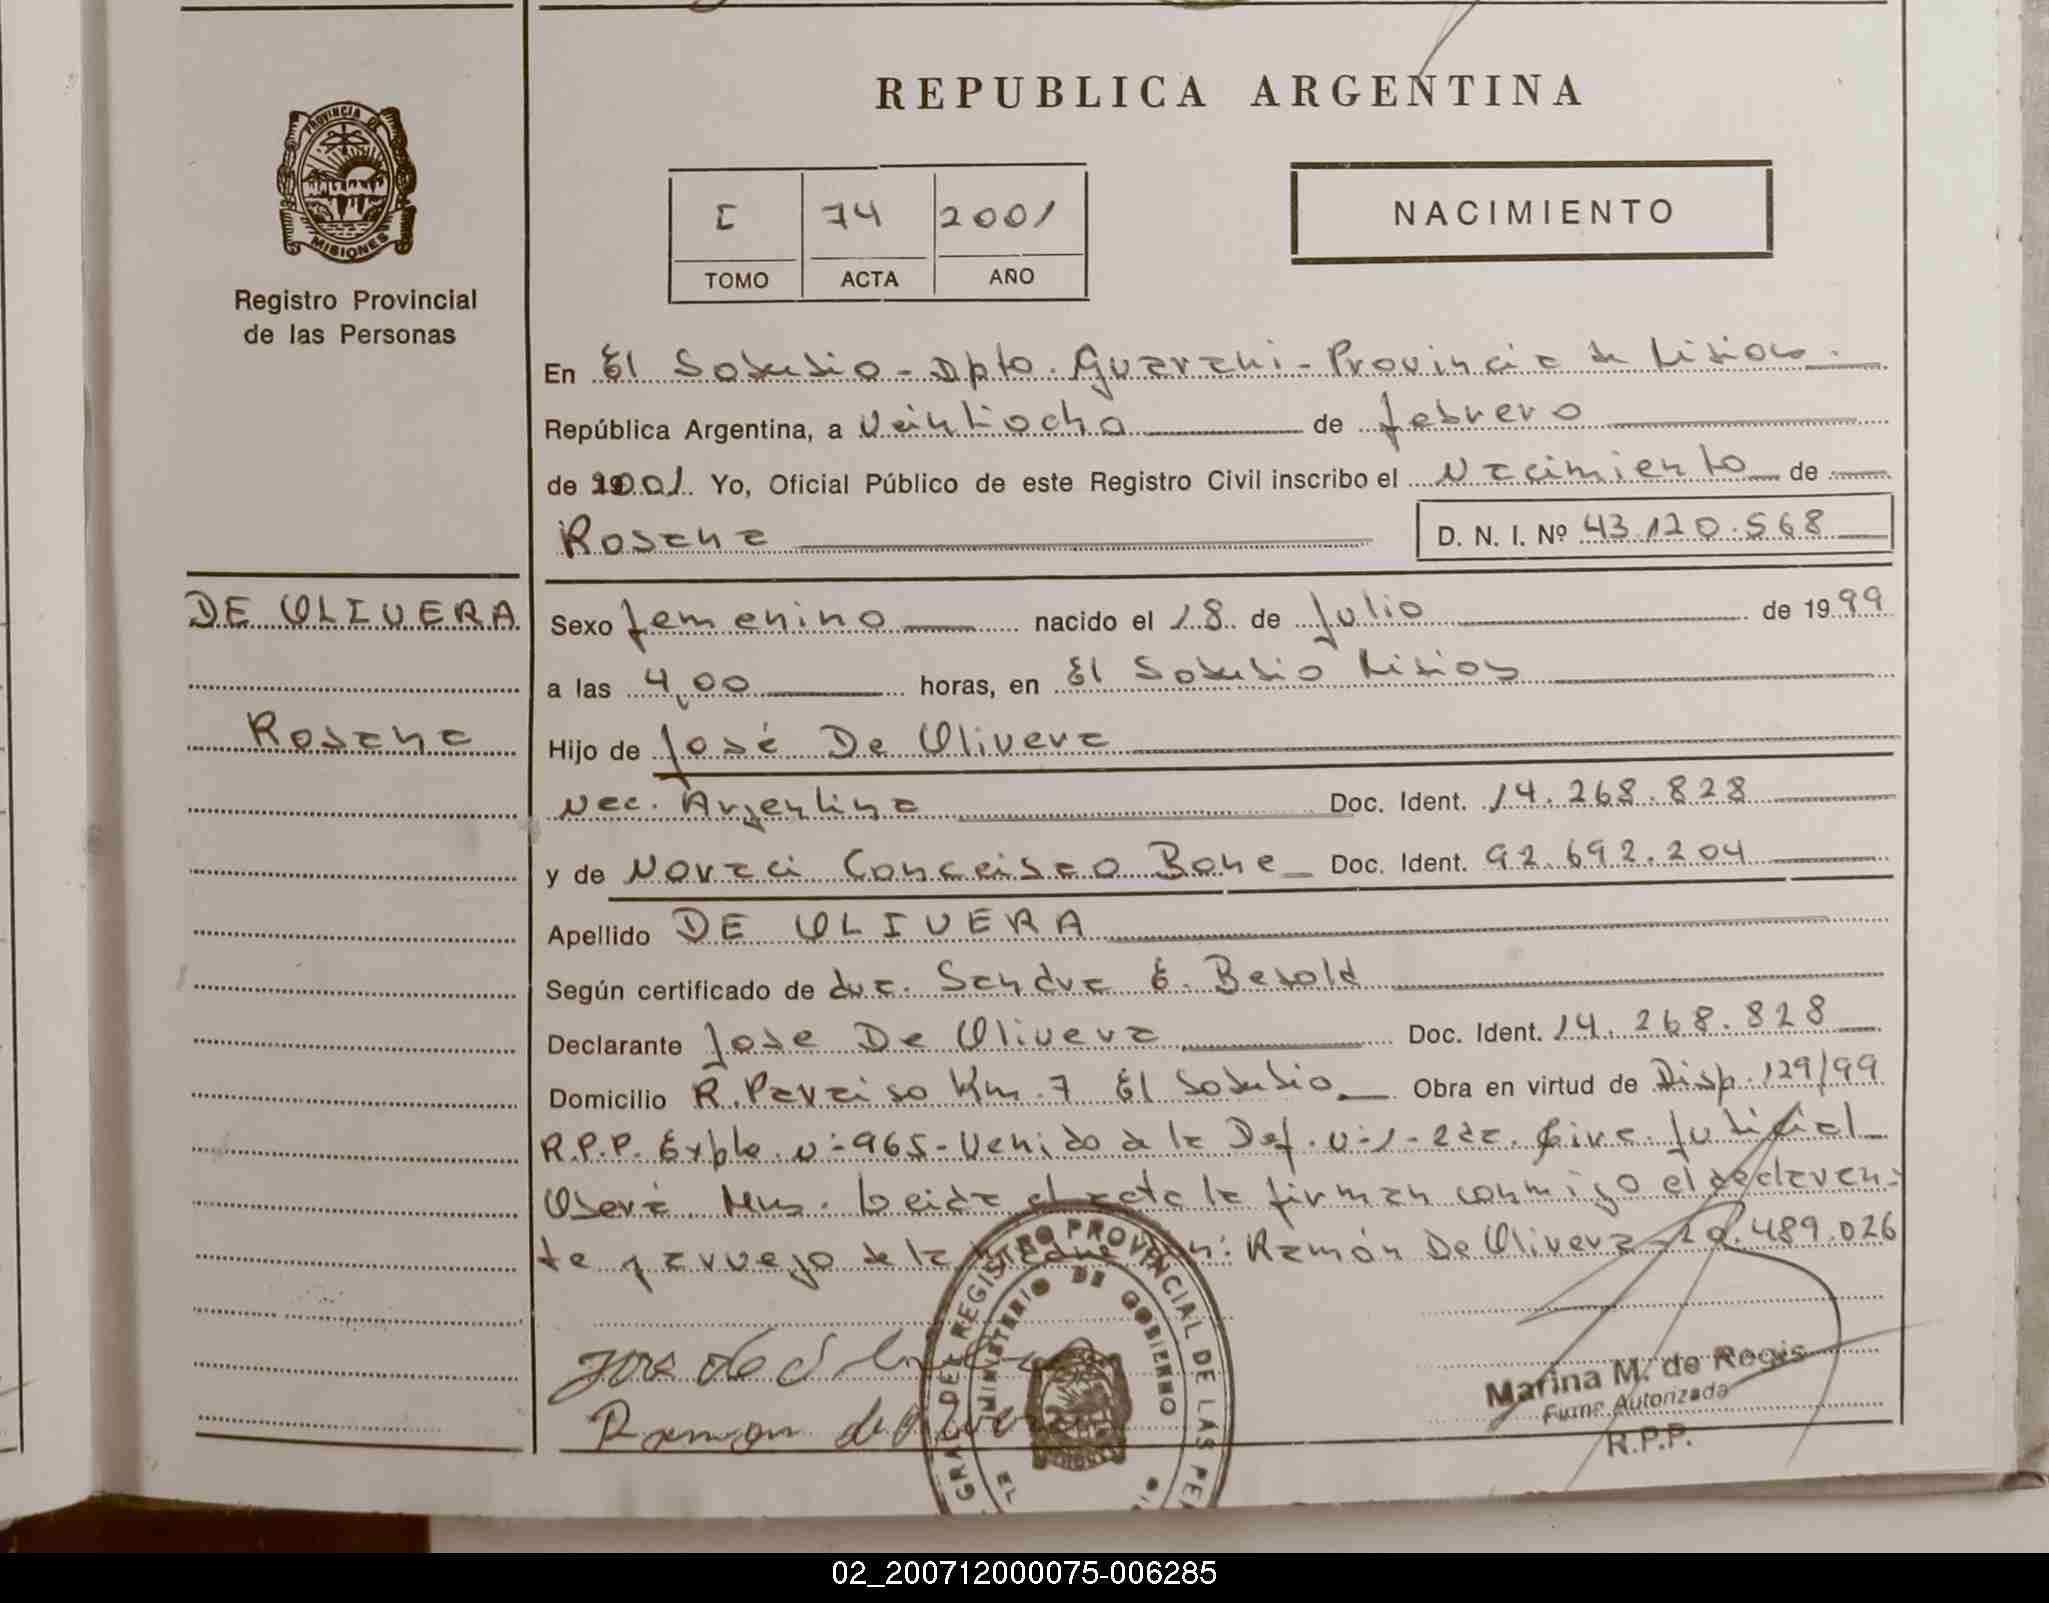 REPUBLICA ARGENTINA
PROVINCIA DE
MISIONES
Registro Provincial
de las Personas
I 74 2001
TOMO ACTA AÑO
NACIMIENTO
En El Soberbio - Dpto. Guarani - Provincia de Misiones.
República Argentina, a Veintiocho de febrero
de 2001. Yo, Oficial Público de este Registro Civil inscribo el Nacimiento de
Rosana D. N. I. Nº 43.120.568
DE OLIVERA
Rosana
Sexo femenino nacido el 18 de Julio de 1999
a las 4,00 horas, en El Soberbio Misiones
Hijo de José De Olivera
Nac. Argentina Doc. Ident. 14.268.828
y de Noraci Conceisao Bone Doc. Ident. 92.692.204
Apellido DE OLIVERA
Según certificado de dra. Sandra E. Besold
Declarante Jose De Olivera Doc. Ident. 14.268.828
Domicilio R. Paraiso Km. 7 El Soberbio Obra en virtud de Disp. 129/99
R.P.P. Expte. Nº 965 - Venido de la Def. Nº 1 - 2da. Circ. Judicial
Oberá Mnes. Leida el acta la firman conmigo el declaran-
te y a ruego de la madre Ramón De Olivera 20.489.026
Jose de Olivera
Ramon de Olivera
GRAL DEL REGISTRO PROVINCIAL DE LAS PER
MINISTERIO DE GOBIERNO
Marina M. de Regis
Firma Autorizada
R.P.P.
02_200712000075-006285